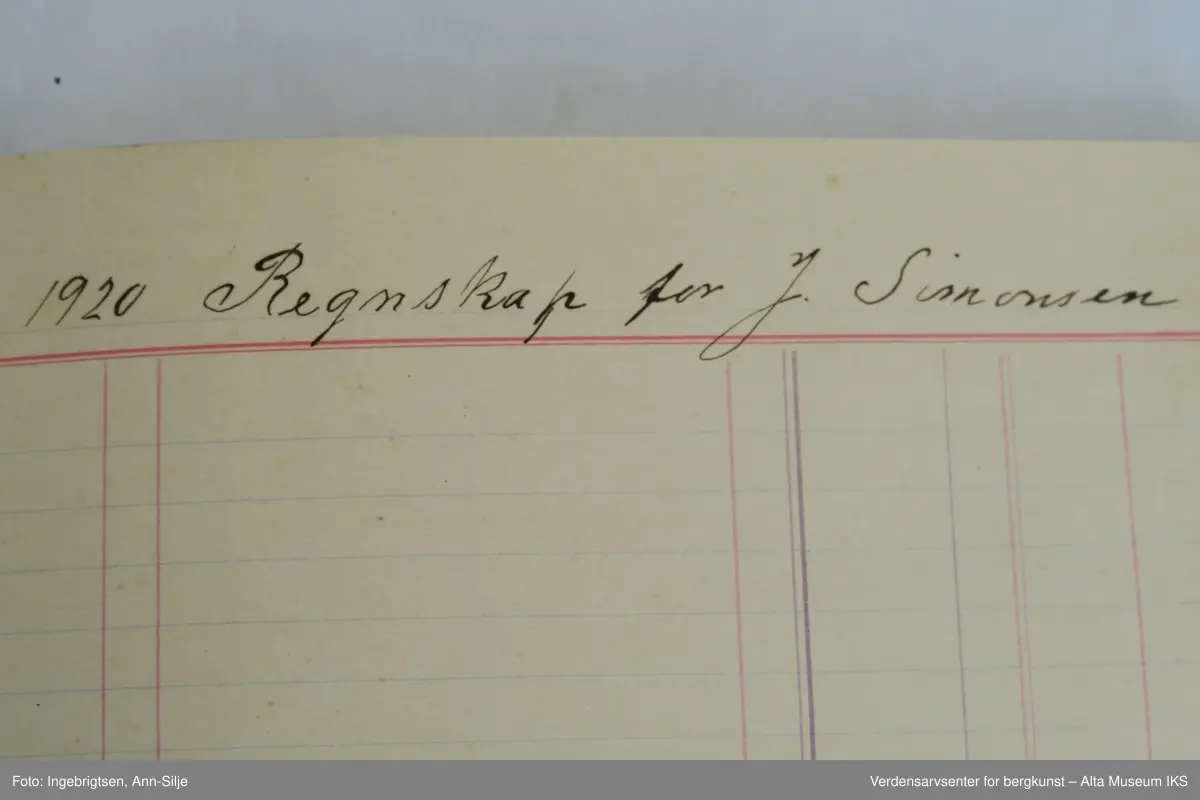 1920 Regnskap for J. Simonsen
Foto: Ingebrigtsen, Ann-Silje
Verdensarvsenter for bergkunst – Alta Museum IKS